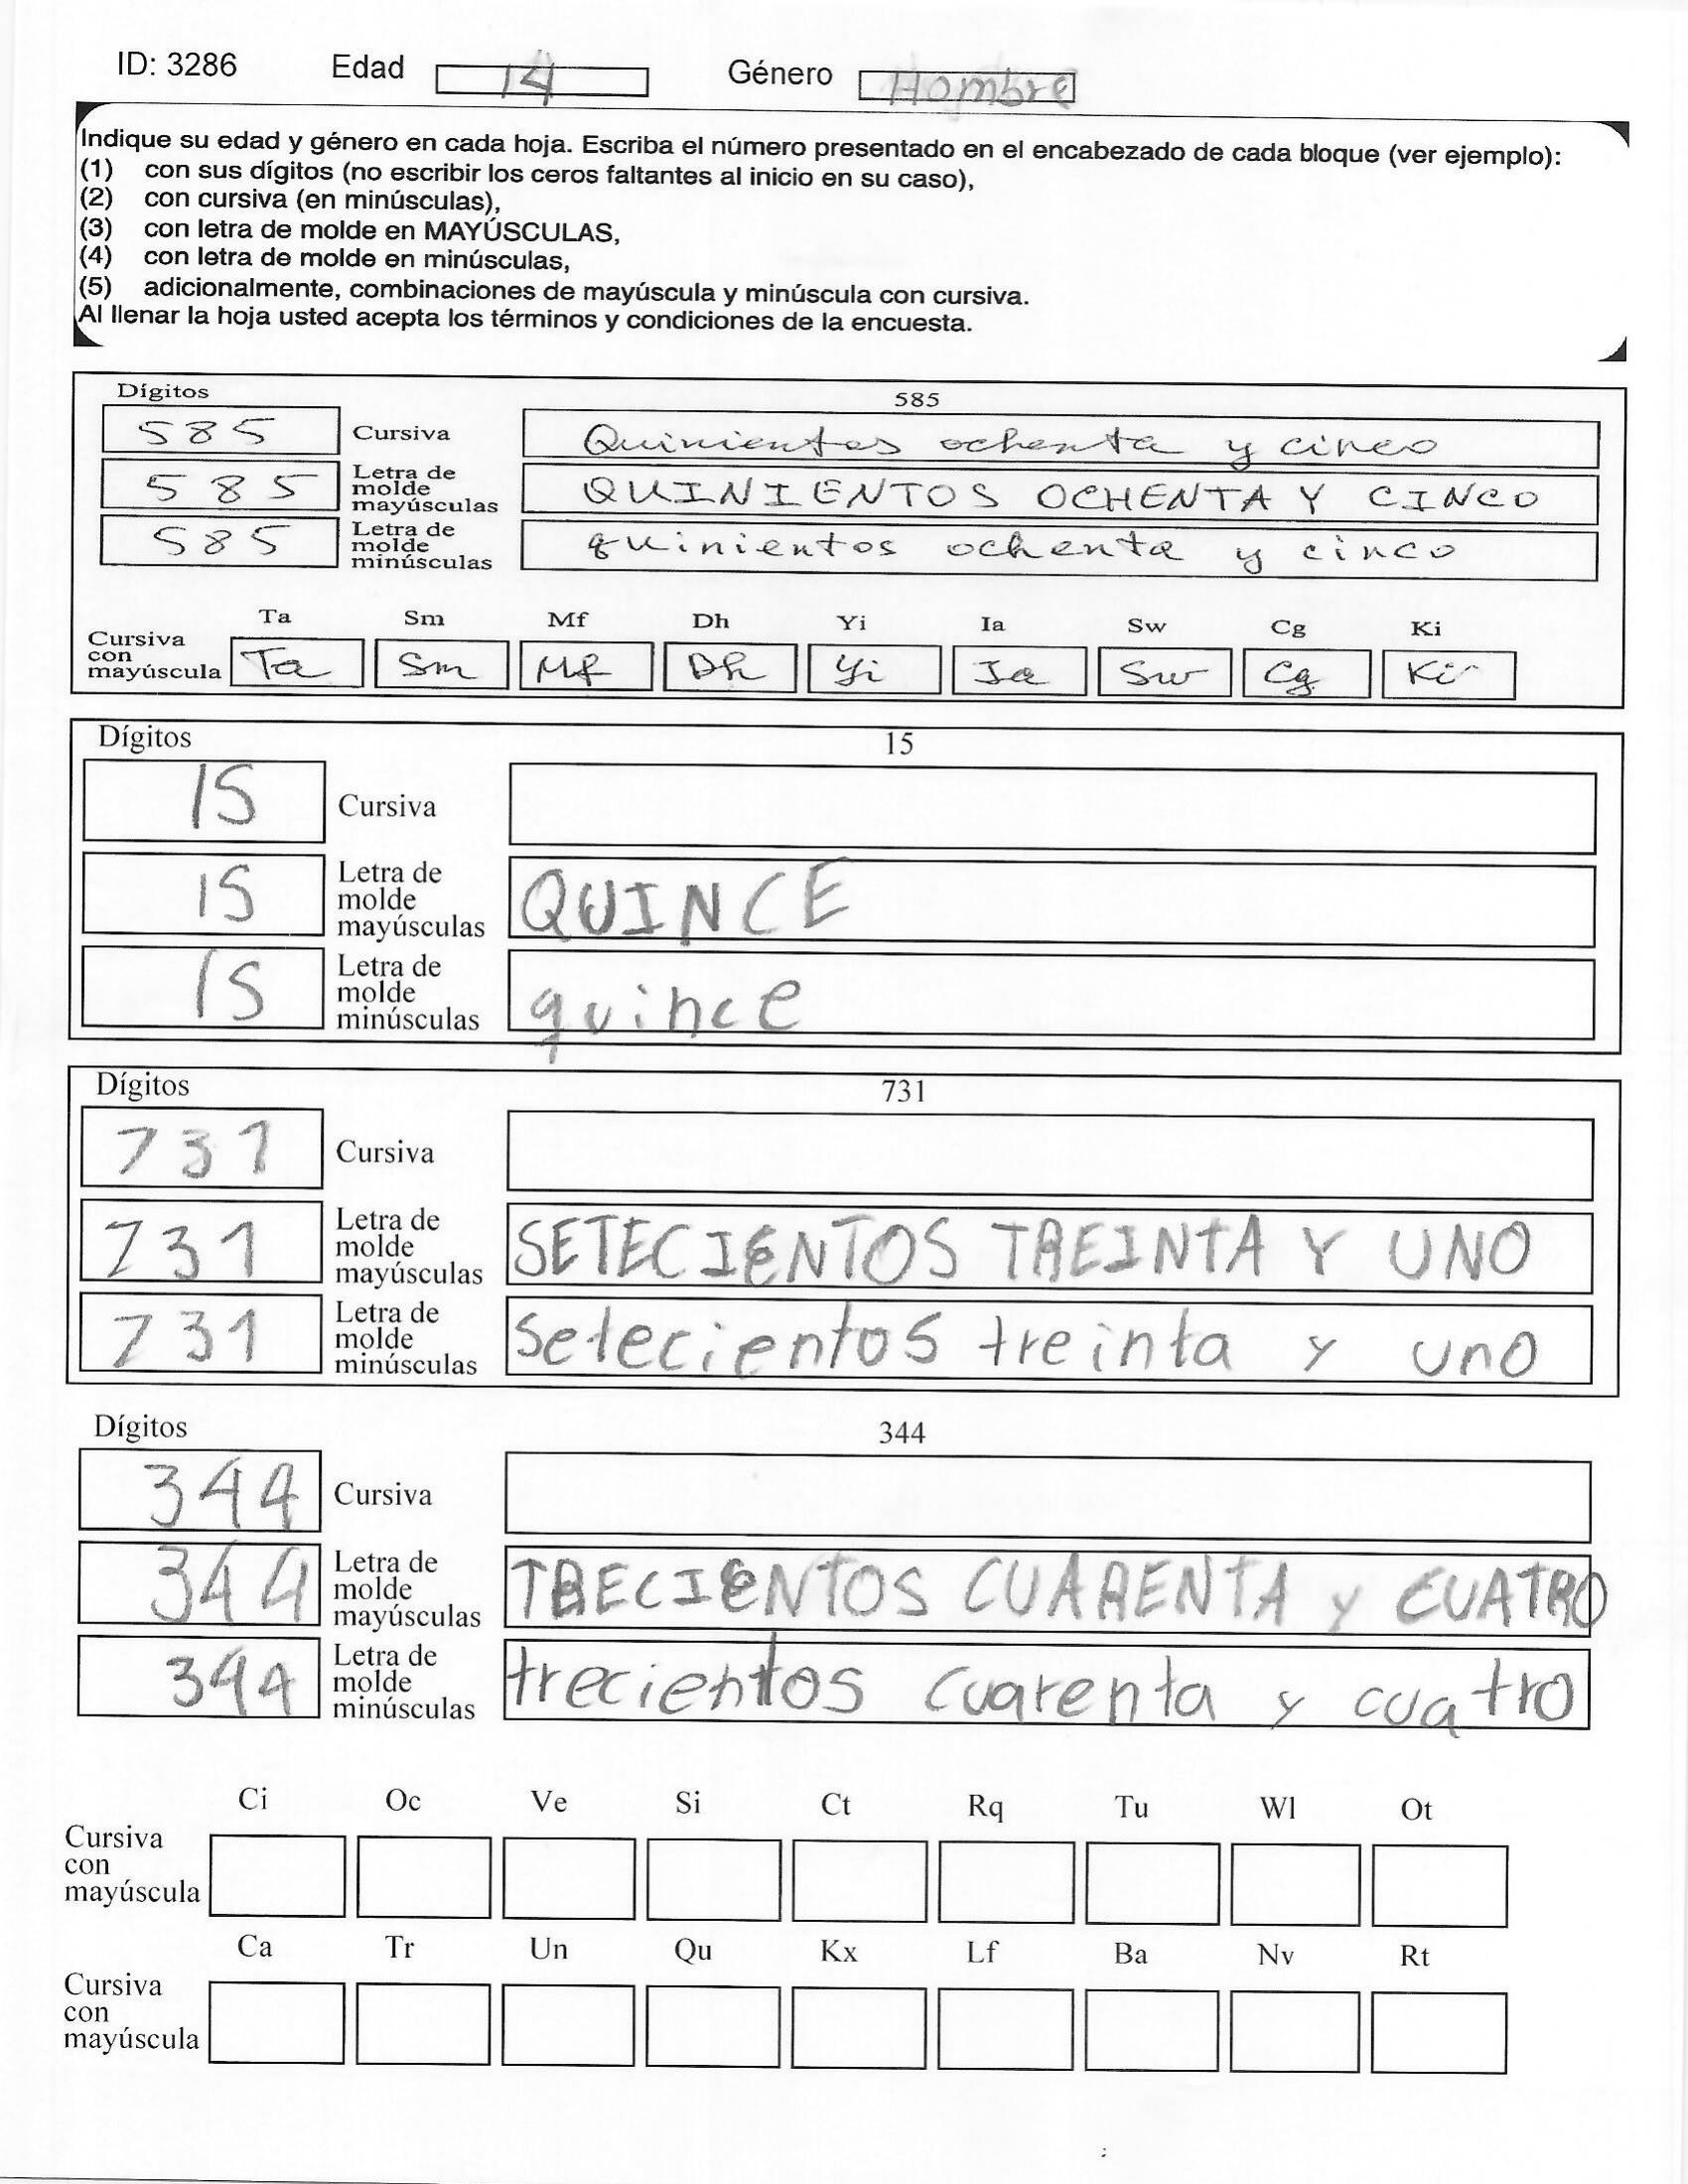 ID: 3286 Edad 14 Género Hombre
Indique su edad y género en cada hoja. Escriba el número presentado en el encabezado de cada bloque (ver ejemplo):
(1) con sus dígitos (no escribir los ceros faltantes al inicio en su caso),
(2) con cursiva (en minúsculas),
(3) con letra de molde en MAYÚSCULAS,
(4) con letra de molde en minúsculas,
(5) adicionalmente, combinaciones de mayúscula y minúscula con cursiva.
Al llenar la hoja usted acepta los términos y condiciones de la encuesta.
Dígitos 585
585 Cursiva Quinientos ochenta y cinco
585 Letra de molde mayúsculas QUINIENTOS OCHENTA Y CINCO
585 Letra de molde minúsculas quinientos ochenta y cinco
Ta Sm Mf Dh Yi Ia Sw Cg Ki
Cursiva con mayúscula Ta Sm Mf Dh Yi Ia Sw Cg Ki
Dígitos 15
15 Cursiva
15 Letra de molde mayúsculas QUINCE
15 Letra de molde minúsculas quince
Dígitos 731
731 Cursiva
731 Letra de molde mayúsculas SETECIENTOS TREINTA Y UNO
731 Letra de molde minúsculas setecientos treinta y uno
Dígitos 344
344 Cursiva
344 Letra de molde mayúsculas TRECIENTOS CUARENTA y CUATRO
344 Letra de molde minúsculas trecientos cuarenta y cuatro
Ci Oc Ve Si Ct Rq Tu Wl Ot
Cursiva con mayúscula
Ca Tr Un Qu Kx Lf Ba Nv Rt
Cursiva con mayúscula